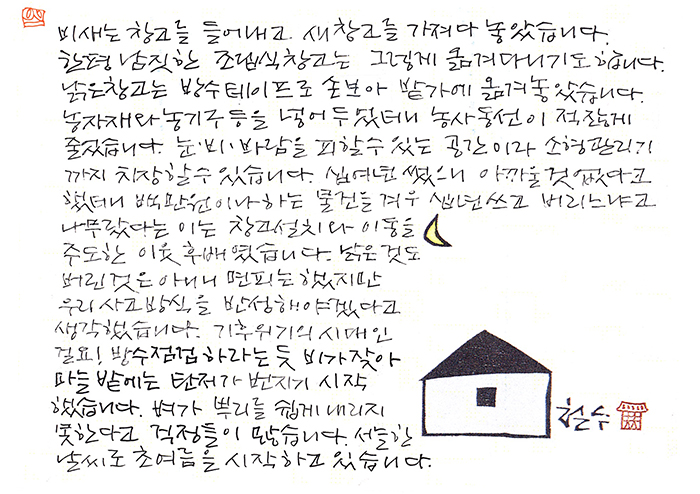 비새는 창고를 들어내고. 새 창고를 가져다 놓았습니다.
한평 남짓한 조립식창고는 그렇게 옮겨다니기도 합니다.
낡은창고는 방수테이프로 손보아 밭가에 옮겨놓았습니다.
농자재와 농기구 등을 넣어 두었더니 농사동선이 적잖게
줄었습니다. 눈·비·바람을 피할 수 있는 공간이라 소형관리기
까지 저장할 수 있습니다. 십여년 썼으니 아까울 것 없다고
했더니 백만원이나 하는 물건을 겨우 십년 쓰고 버리느냐고
나무랐다는 이는 창고설치와 이동을
주도한 이웃 후배였습니다. 낡은 것도
버린 것은 아니니 면피는 했지만
우리 사고방식을 반성해야겠다고
생각했습니다. 기후위기의 시대인
걸요! 방수점검하라는 듯 비가 잦아
마늘 밭에는 탄저가 번지기 시작
했습니다. 벼가 뿌리를 쉽게 내리지
못한다고 걱정들이 많습니다. 서늘한
날씨로 초여름을 시작하고 있습니다.
철수